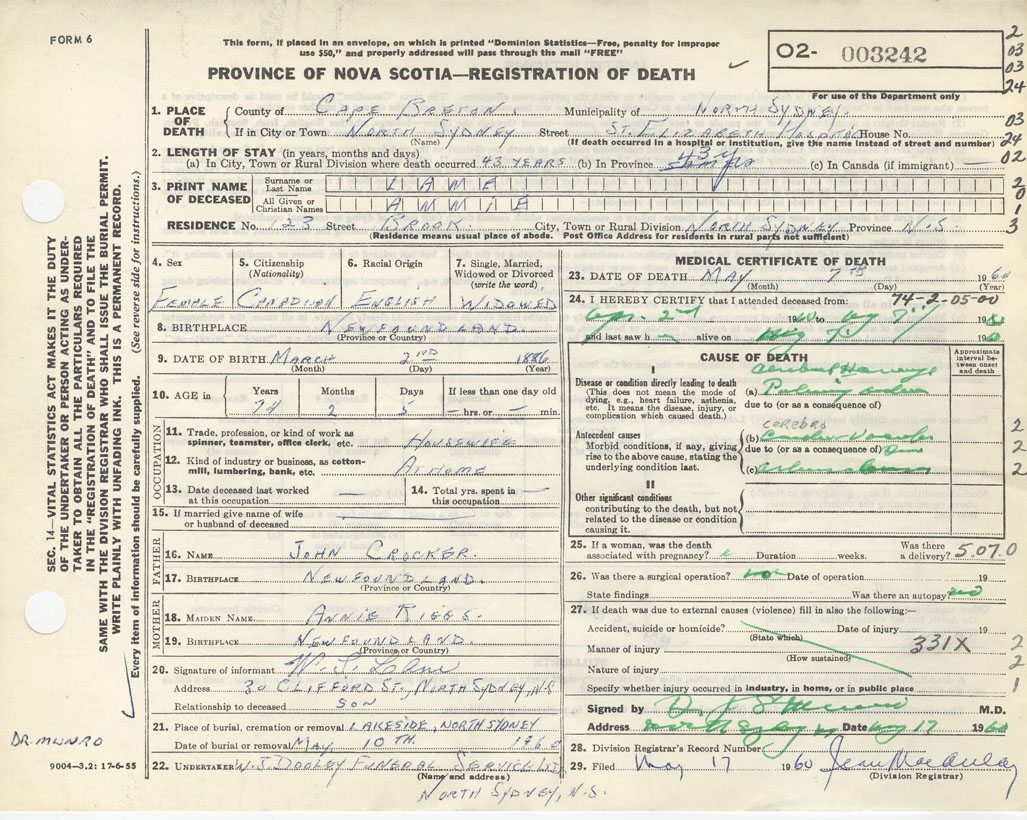 FORM 6
This form, if placed in an envelope, on which is printed "Dominion Statistics—Free, penalty for improper
use $50," and properly addressed will pass through the mail "FREE"
PROVINCE OF NOVA SCOTIA—REGISTRATION OF DEATH
02- 003242
For use of the Department only
2
03
03
24
1. PLACE OF DEATH
County of CAPE BRETON. Municipality of NORTH SYDNEY. 03
If in City or Town NORTH SYDNEY Street ST. ELIZABETH HOSPITAL House No.
(Name) (If death occurred in a hospital or institution, give the name instead of street and number) 24
2. LENGTH OF STAY (in years, months and days)
(a) In City, Town or Rural Division where death occurred 43 YEARS (b) In Province 43 y (c) In Canada (if immigrant) — 02
3. PRINT NAME OF DECEASED
Surname or Last Name LAME 2
All Given or Christian Names ANNIE 1
RESIDENCE No. 123 Street BROOK City, Town or Rural Division NORTH SYDNEY Province N.S. 3
(Residence means usual place of abode. Post Office Address for residents in rural parts not sufficient)
4. Sex 5. Citizenship (Nationality) 6. Racial Origin 7. Single, Married, Widowed or Divorced (write the word)
FEMALE CANADIAN ENGLISH WIDOWED
8. BIRTHPLACE NEWFOUNDLAND.
(Province or Country)
9. DATE OF BIRTH MARCH 2ND 1886
(Month) (Day) (Year)
10. AGE in Years Months Days If less than one day old
74 2 5 — hrs. or — min.
OCCUPATION
11. Trade, profession, or kind of work as spinner, teamster, office clerk, etc. HOUSEWIFE
12. Kind of industry or business, as cotton-mill, lumbering, bank, etc. AT HOME
13. Date deceased last worked at this occupation — 14. Total yrs. spent in this occupation —
15. If married give name of wife or husband of deceased
FATHER
16. NAME JOHN CROCKER.
17. BIRTHPLACE NEWFOUNDLAND.
(Province or Country)
MOTHER
18. MAIDEN NAME ANNIE RIGGS.
19. BIRTHPLACE NEWFOUNDLAND.
(Province or Country)
20. Signature of informant W. S.
Address 30 CLIFFORD ST., NORTH SYDNEY, N.S.
Relationship to deceased SON
21. Place of burial, cremation or removal LAKESIDE, NORTH SYDNEY
Date of burial or removal MAY, 10TH. 1960
22. UNDERTAKER W. J. DOOLEY FUNERAL SERVICE LTD
(Name and address)
NORTH SYDNEY, N.S.
MEDICAL CERTIFICATE OF DEATH
23. DATE OF DEATH MAY 7TH 1960
(Month) (Day) (Year)
24. I HEREBY CERTIFY that I attended deceased from: 74-2-05-00
Apr. 2nd 1960 to May 7th 1960
and last saw h alive on May 7 1960
CAUSE OF DEATH
Approximate interval between onset and death
I
Disease or condition directly leading to death
(This does not mean the mode of dying, e.g., heart failure, asthenia, etc. It means the disease, injury, or complication which caused death.)
Cerebral
(a)
due to (or as a consequence of)
Antecedent causes
Morbid conditions, if any, giving rise to the above cause, stating the underlying condition last.
cerebro
(b) 2
due to (or as a consequence of) 2
(c) 2
II
Other significant conditions
contributing to the death, but not related to the disease or condition causing it.
25. If a woman, was the death associated with pregnancy? Duration weeks. Was there a delivery? 5.07.0
26. Was there a surgical operation? no Date of operation 19
State findings Was there an autopsy? no
27. If death was due to external causes (violence) fill in also the following:—
Accident, suicide or homicide? Date of injury 19
(State which)
Manner of injury 331X 2
(How sustained)
Nature of injury 2
Specify whether injury occurred in industry, in home, or in public place 1
Signed by M.D.
Address North Sydney Date May 17 1960
28. Division Registrar's Record Number
29. Filed May 17 1960 Jean MacAulay
(Division Registrar)
SEC. 14—VITAL STATISTICS ACT MAKES IT THE DUTY
OF THE UNDERTAKER OR PERSON ACTING AS UNDER-
TAKER TO OBTAIN ALL THE PARTICULARS REQUIRED
IN THE "REGISTRATION OF DEATH" AND TO FILE THE
SAME WITH THE DIVISION REGISTRAR WHO SHALL ISSUE THE BURIAL PERMIT.
WRITE PLAINLY WITH UNFADING INK. THIS IS A PERMANENT RECORD.
Every item of information should be carefully supplied. (See reverse side for instructions.)
DR. MUNRO
9004—3.2: 17-6-55